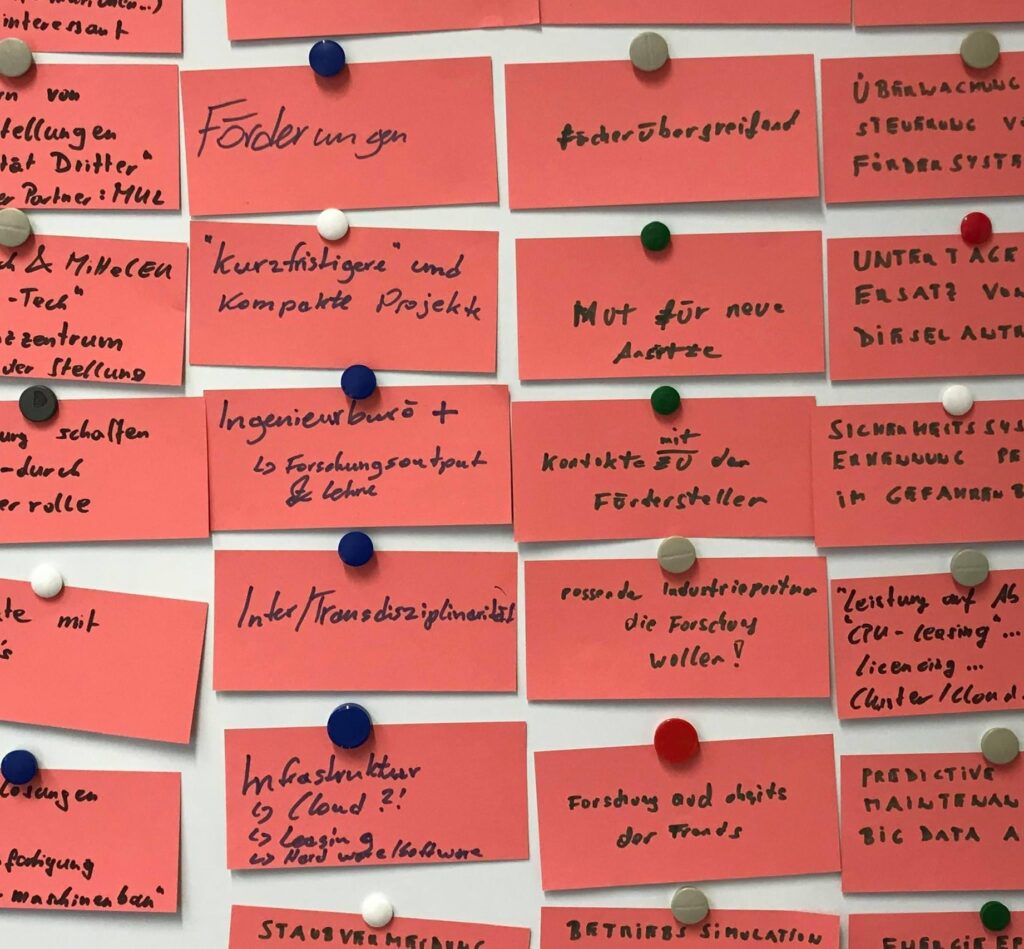 interessant
von
tellungen
tät Dritter"
Partner: MUL
& MiHelEU
-Tech"
zzentrum
der Stellung
ung schalten
-durch
er rolle
te mit
's
lösungen
maschinenbau"
Förderungen
"Kurzfristigere" und
Kompakte Projekte
Ingenieurbüro +
↳ Forschungsoutput
& Lehre
Inter/Transdisziplinarität
Infrastruktur
↳ Cloud ?!
↳ Leasing
↳ Hardware/Software
STAUBVERMEIDUNG
fächerübergreifend
Mut für neue
Ansätze
mit
Kontakte zu den
Förderstellen
passende Industriepartner
die Forschung
wollen!
Forschung auch abseits
der Trends
BETRIEBSSIMULATION
ÜBERWACHUNG
STEUERUNG V
FÖRDERSYSTE
UNTER TAGE
ERSATZ VON
DIESELANTR
SICHERHEITSSYS
ERKENNUNG PE
IM GEFAHRENB
"Leistung auf Ab
"CPU-Leasing"...
licencing...
Cluster/Cloud
PREDICTIVE
MAINTENAN
BIG DATA A